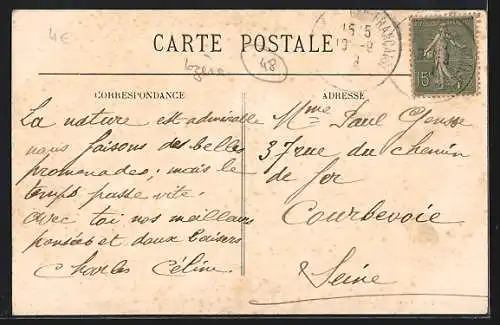 4€
CARTE POSTALE
Lozère
48
CORRESPONDANCE
ADRESSE
La nature est admirable
nous faisons des belles
promenades, mais le
temps passe vite.
avec toi nos meilleurs
pensées et doux baisers
Charles Céline
Mme Paul
37 rue du chemin
de fer
Courbevoie
Seine
15